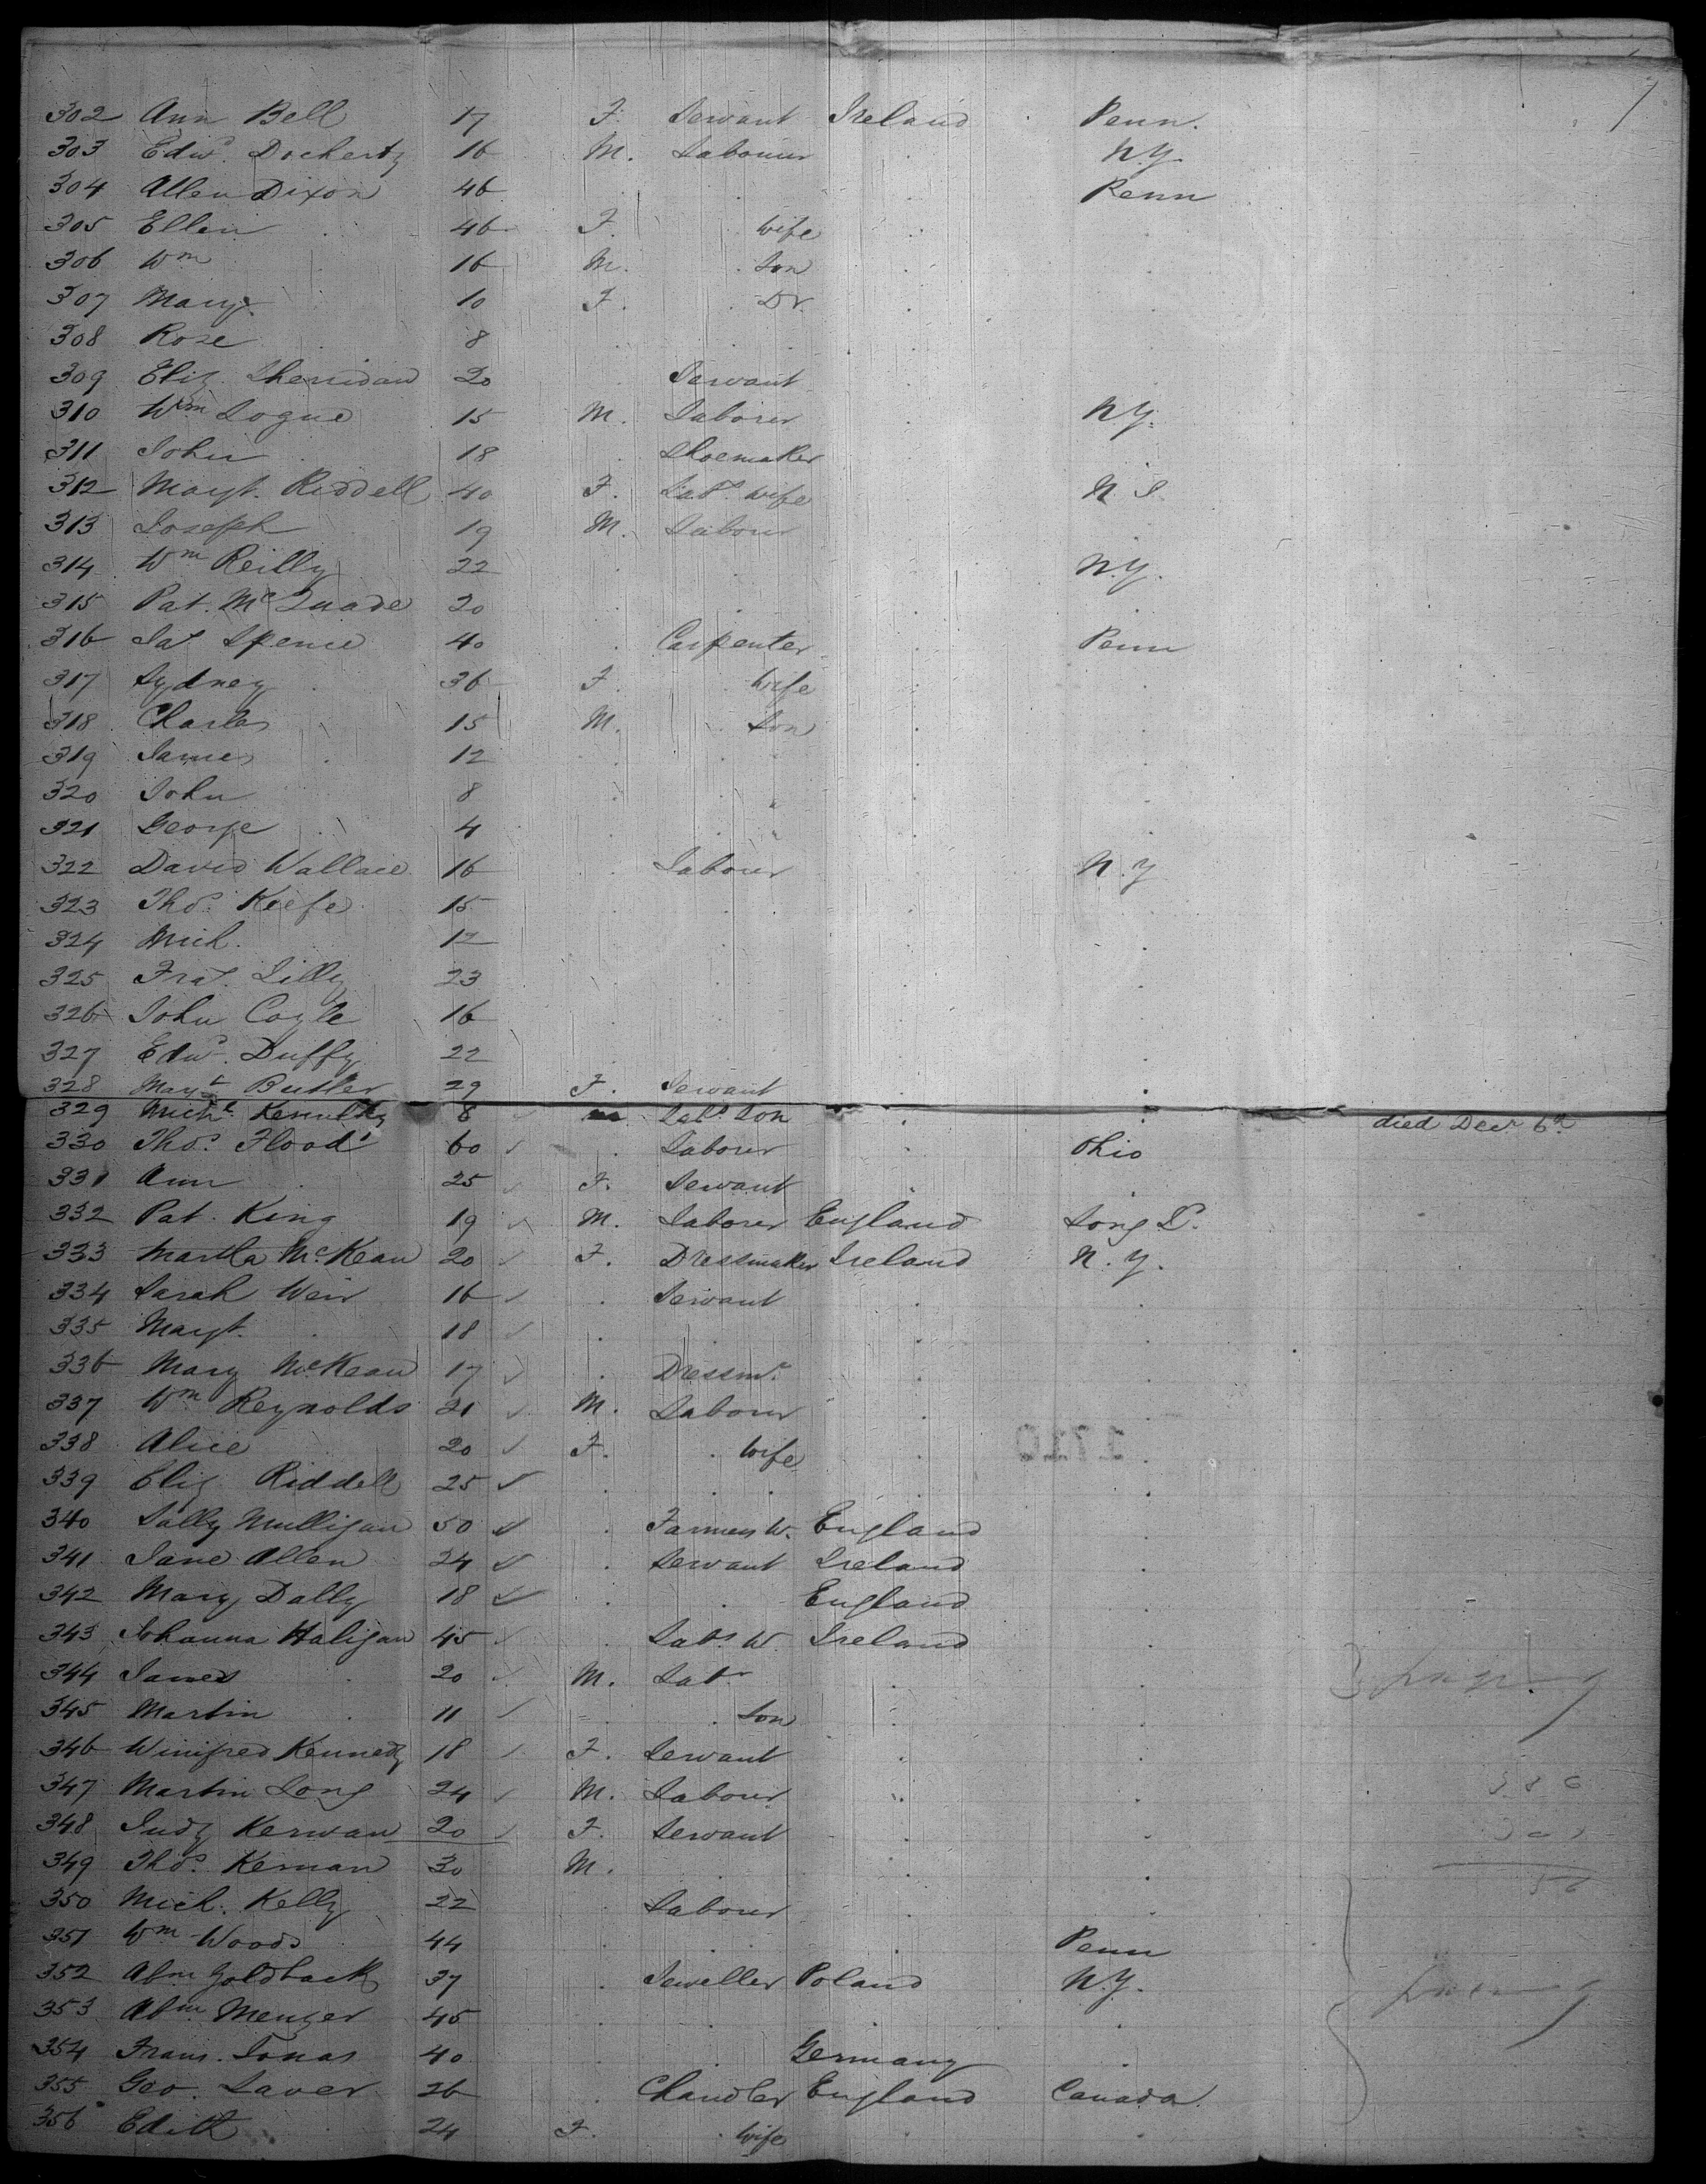 302 Ann Bell 17 F. Servant Ireland Penn.
303 Edwd. Docherty 16 M. Labourer . N.Y.
304 Allen Dixon 46 . . . Penn
305 Ellen . 46 F. . wife . .
306 Wm . 16 M. . Son . .
307 Mary . 10 F. . Dr. . .
308 Rose . 8 . . . . .
309 Eliz Sherridan 20 . Servant . .
310 Wm Logue 15 M. Laborer . N.Y.
311 John . 18 . Shoemaker . .
312 Margt. Riddell 40 F. Labs. wife .
313 Joseph . 19 M. Labour . .
314 Wm Reilly 22 . . . N.Y.
315 Pat. McQuade 20 . . . .
316 Jas Spence 40 . Carpenter . Penn
317 Sydney . 36 F. . wife . .
318 Charles . 15 M. . Son . .
319 James . 12 . . . . .
320 John 8 . . " . .
321 George . 4 . . " . .
322 David Wallace 16 . Labour . N.Y
323 Thos. Keefe 15 . . . .
324 Mich. 12 . . . .
325 Fras. Lilly 23 . . . .
326 John Coyle 16 . . . .
327 Edwd. Duffy 22 . . . .
328 Margt Butler 29 F. Servant . .
329 Michl 8 Labs Son . . died Decr 6th
330 Thos. Flood 60 . Laborer . Ohio
331 Ann . 25 F. Servant . .
332 Pat. King 19 M. Laborer England Long I.
333 Martha McKean 20 F. Dressmaker Ireland N.Y.
334 Sarah Weir 16 . Servant . .
335 Margt. . 18 . . . .
336 Mary McKean 17 . Dressmr . .
337 Wm Reynolds 21 M. Labour . .
338 Alice . 20 F. . wife . .
339 Eliz Riddell 25 . . . . .
340 Sally Mulligan 50 . Farmers W. England .
341 Jane Allen 24 . Servant Ireland .
342 Mary Dally 18 . . England .
343 Johanna Haligan 45 . Labs W. Ireland .
344 James . 20 M. Labr . .
345 Martin . 11 . . Son . .
346 Winifred Kennedy 18 F. Servant . .
347 Martin Long 24 M. Labour . .
348 Judy Kerwan 20 F. Servant . .
349 Thos. Kernan 30 M. . . .
350 Mich. Kelly 22 . Labour . .
351 Wm Woods 44 . . . Penn
352 Abm Goldback 37 . Jeweller Poland N.Y.
353 Abm. Menzer 45 . . . .
354 Frans. Jonas 40 . . Germany .
355 Geo. Laver 26 . Chandler England Canada.
356 Edith . 24 F. . wife . .